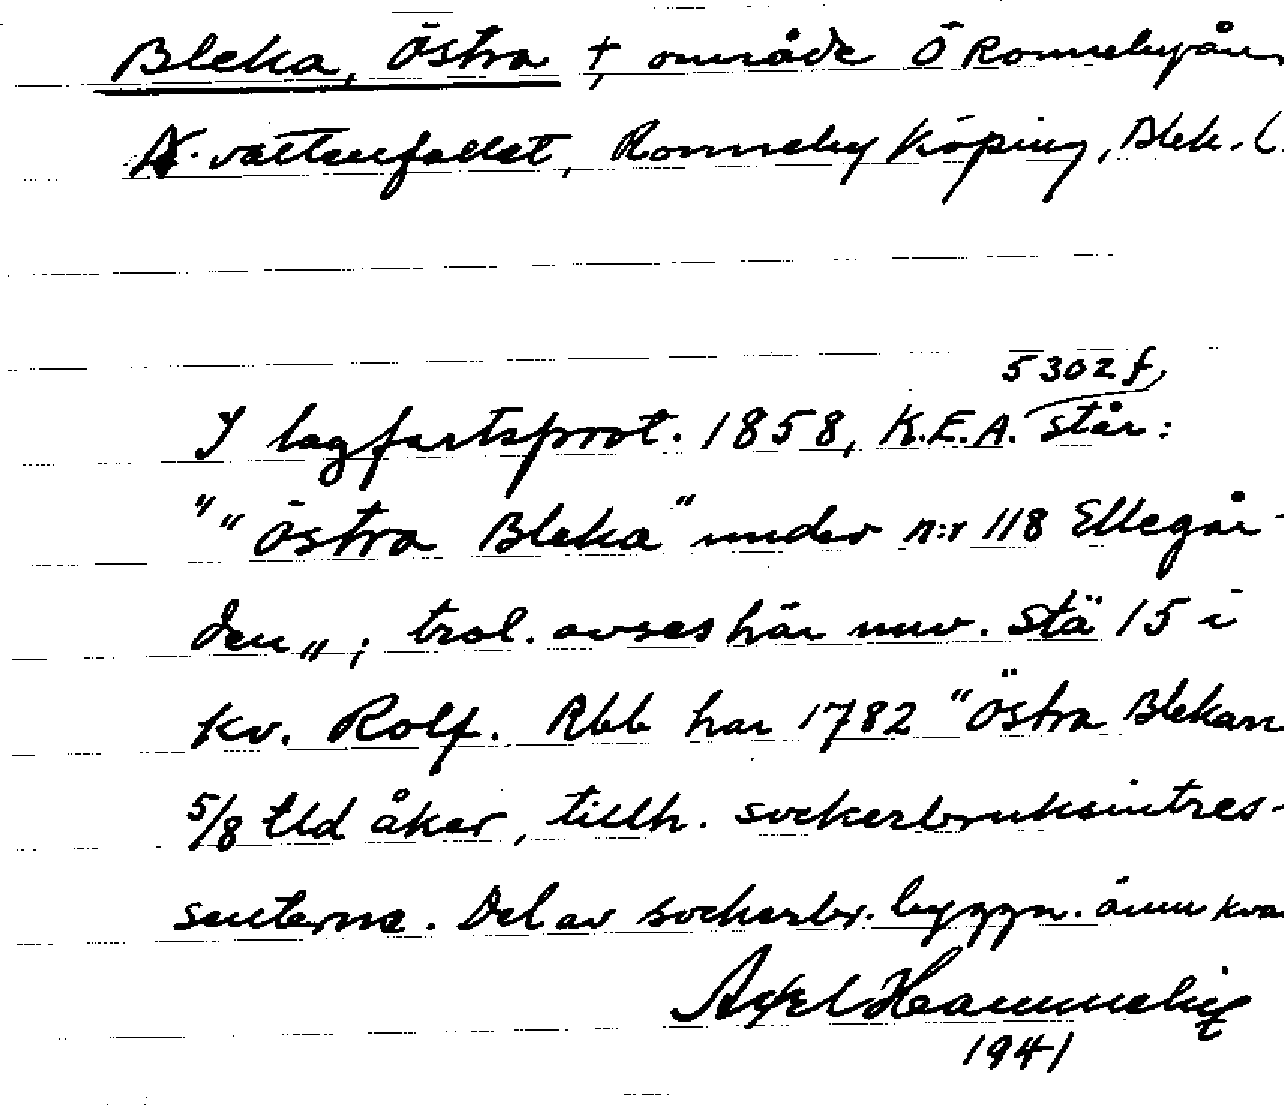 Bleka, Östra †, område Ö Ronnebyån
N. vattenfallet, Ronneby köping, Blek. l.
5302 f,
I lagfartsprot. 1858, K.E.A. står:
"“Östra Bleka” under n:r 118 Ellegår-
den„ ; trol. avses här nuv. stä 15 i
kv. Rolf. Rbb har 1782 "Östra Blekan
5/8 tld åker, tillh. sockerbruksintres-
senterne. Del av sockerbr. byggn. ännu kvar
Axel Hammelig
1941